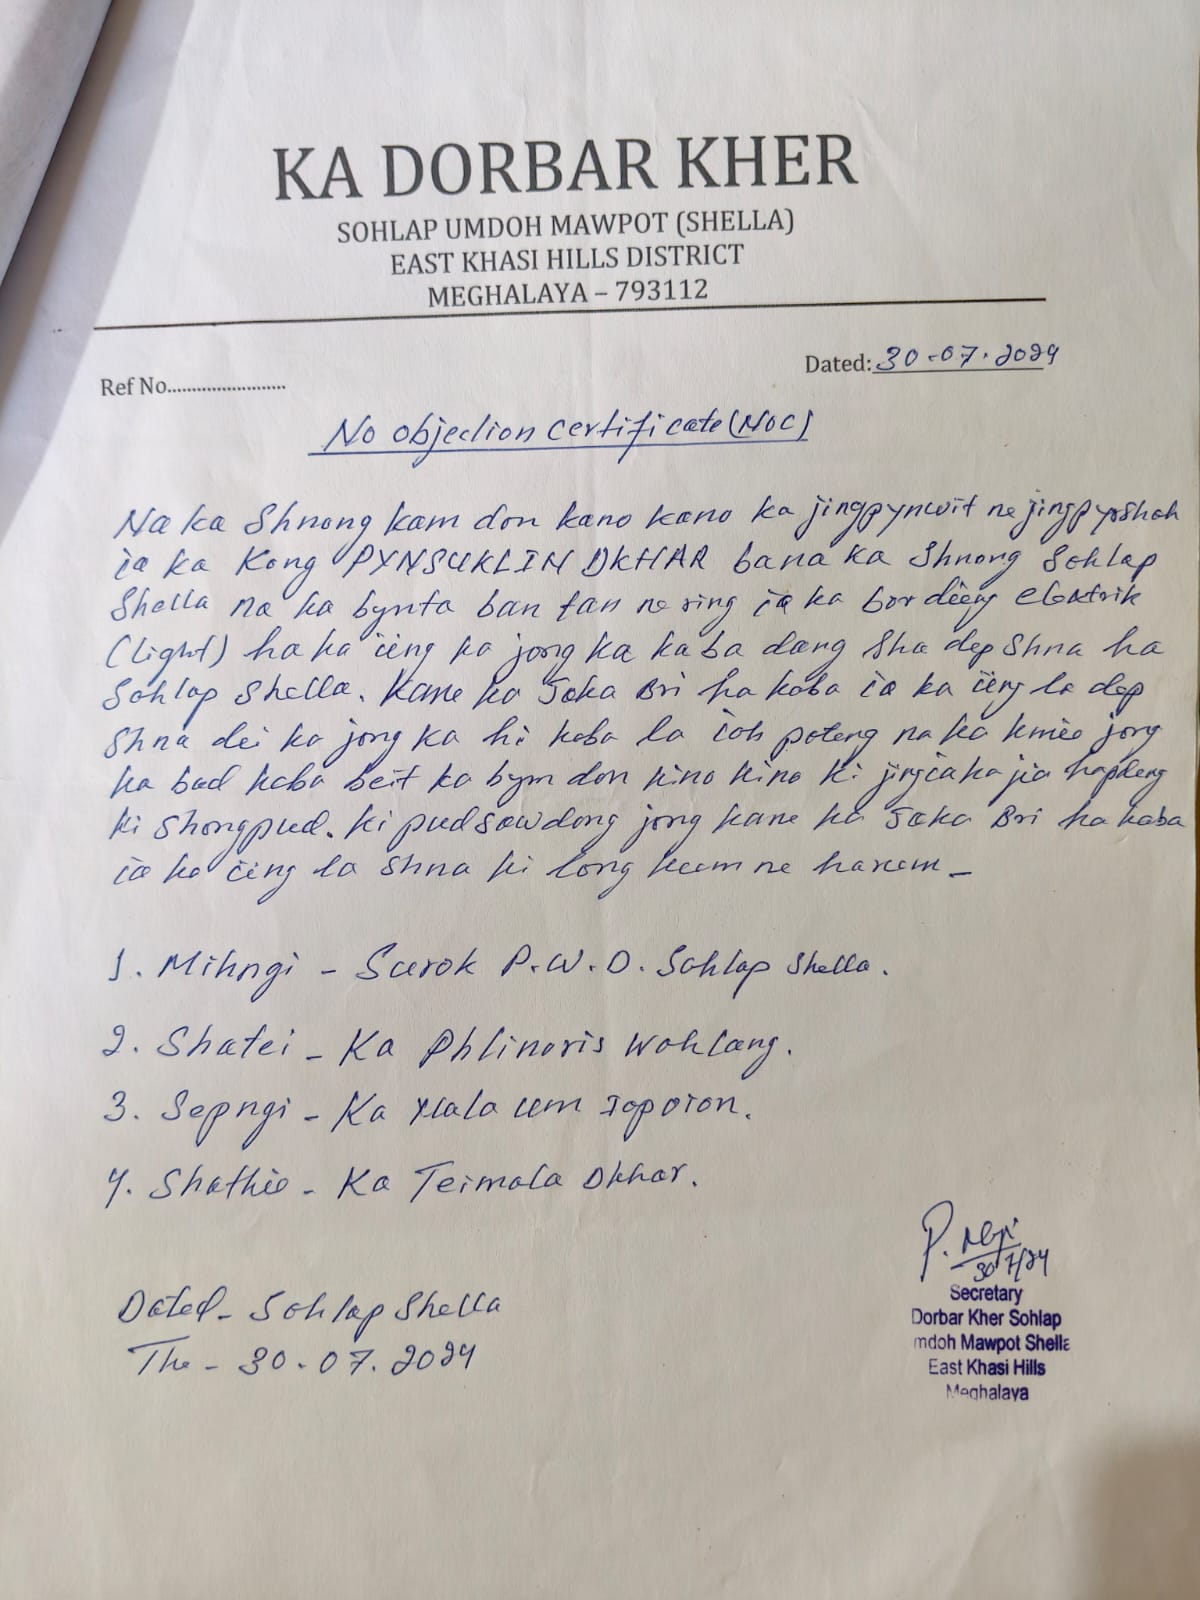 KA DORBAR KHER
SOHLAP UMDOH MAWPOT (SHELLA)
EAST KHASI HILLS DISTRICT
MEGHALAYA – 793112
Ref No........................
Dated: 30-07-2024
No objection certificate (NOC)
Na ka Shnong kam don kano kano ka jingpynwit ne jingpyrshah
ia ka Kong PYNSUKLIN DKHAR bana ka Shnong Sohlap
Shella na ka bynta ban tan ne ring ia ka bor ding elektrik
(Light) ha ka ïing ka jong ka kaba dang sha dep shna ha
Sohlap Shella. Kane ka Jaka Bri ha kaba ia ka ïing la dep
Shna dei ka jong ka hi kaba la ioh pateng na ka kmie jong
ka bad kaba beit ka bym don kino kino ki jingiakajia hapdeng
ki Shongpud. ki pudsawdong jong kane ka Jaka Bri ha kaba
ia ka ïing la Shna ki long kum ne harum -
1. Mihngi - Surok P.W.D. Sohlap Shella.
2. Shatei - Ka Phlinoris Wahlang.
3. Sepngi - Ka Wala um
4. Shathie - Ka Teimala Dkhar.
30/7/24
Secretary
Dorbar Kher Sohlap
mdoh Mawpot Shella
East Khasi Hills
Meghalaya
Dated - Sohlap Shella
The - 30.07.2024